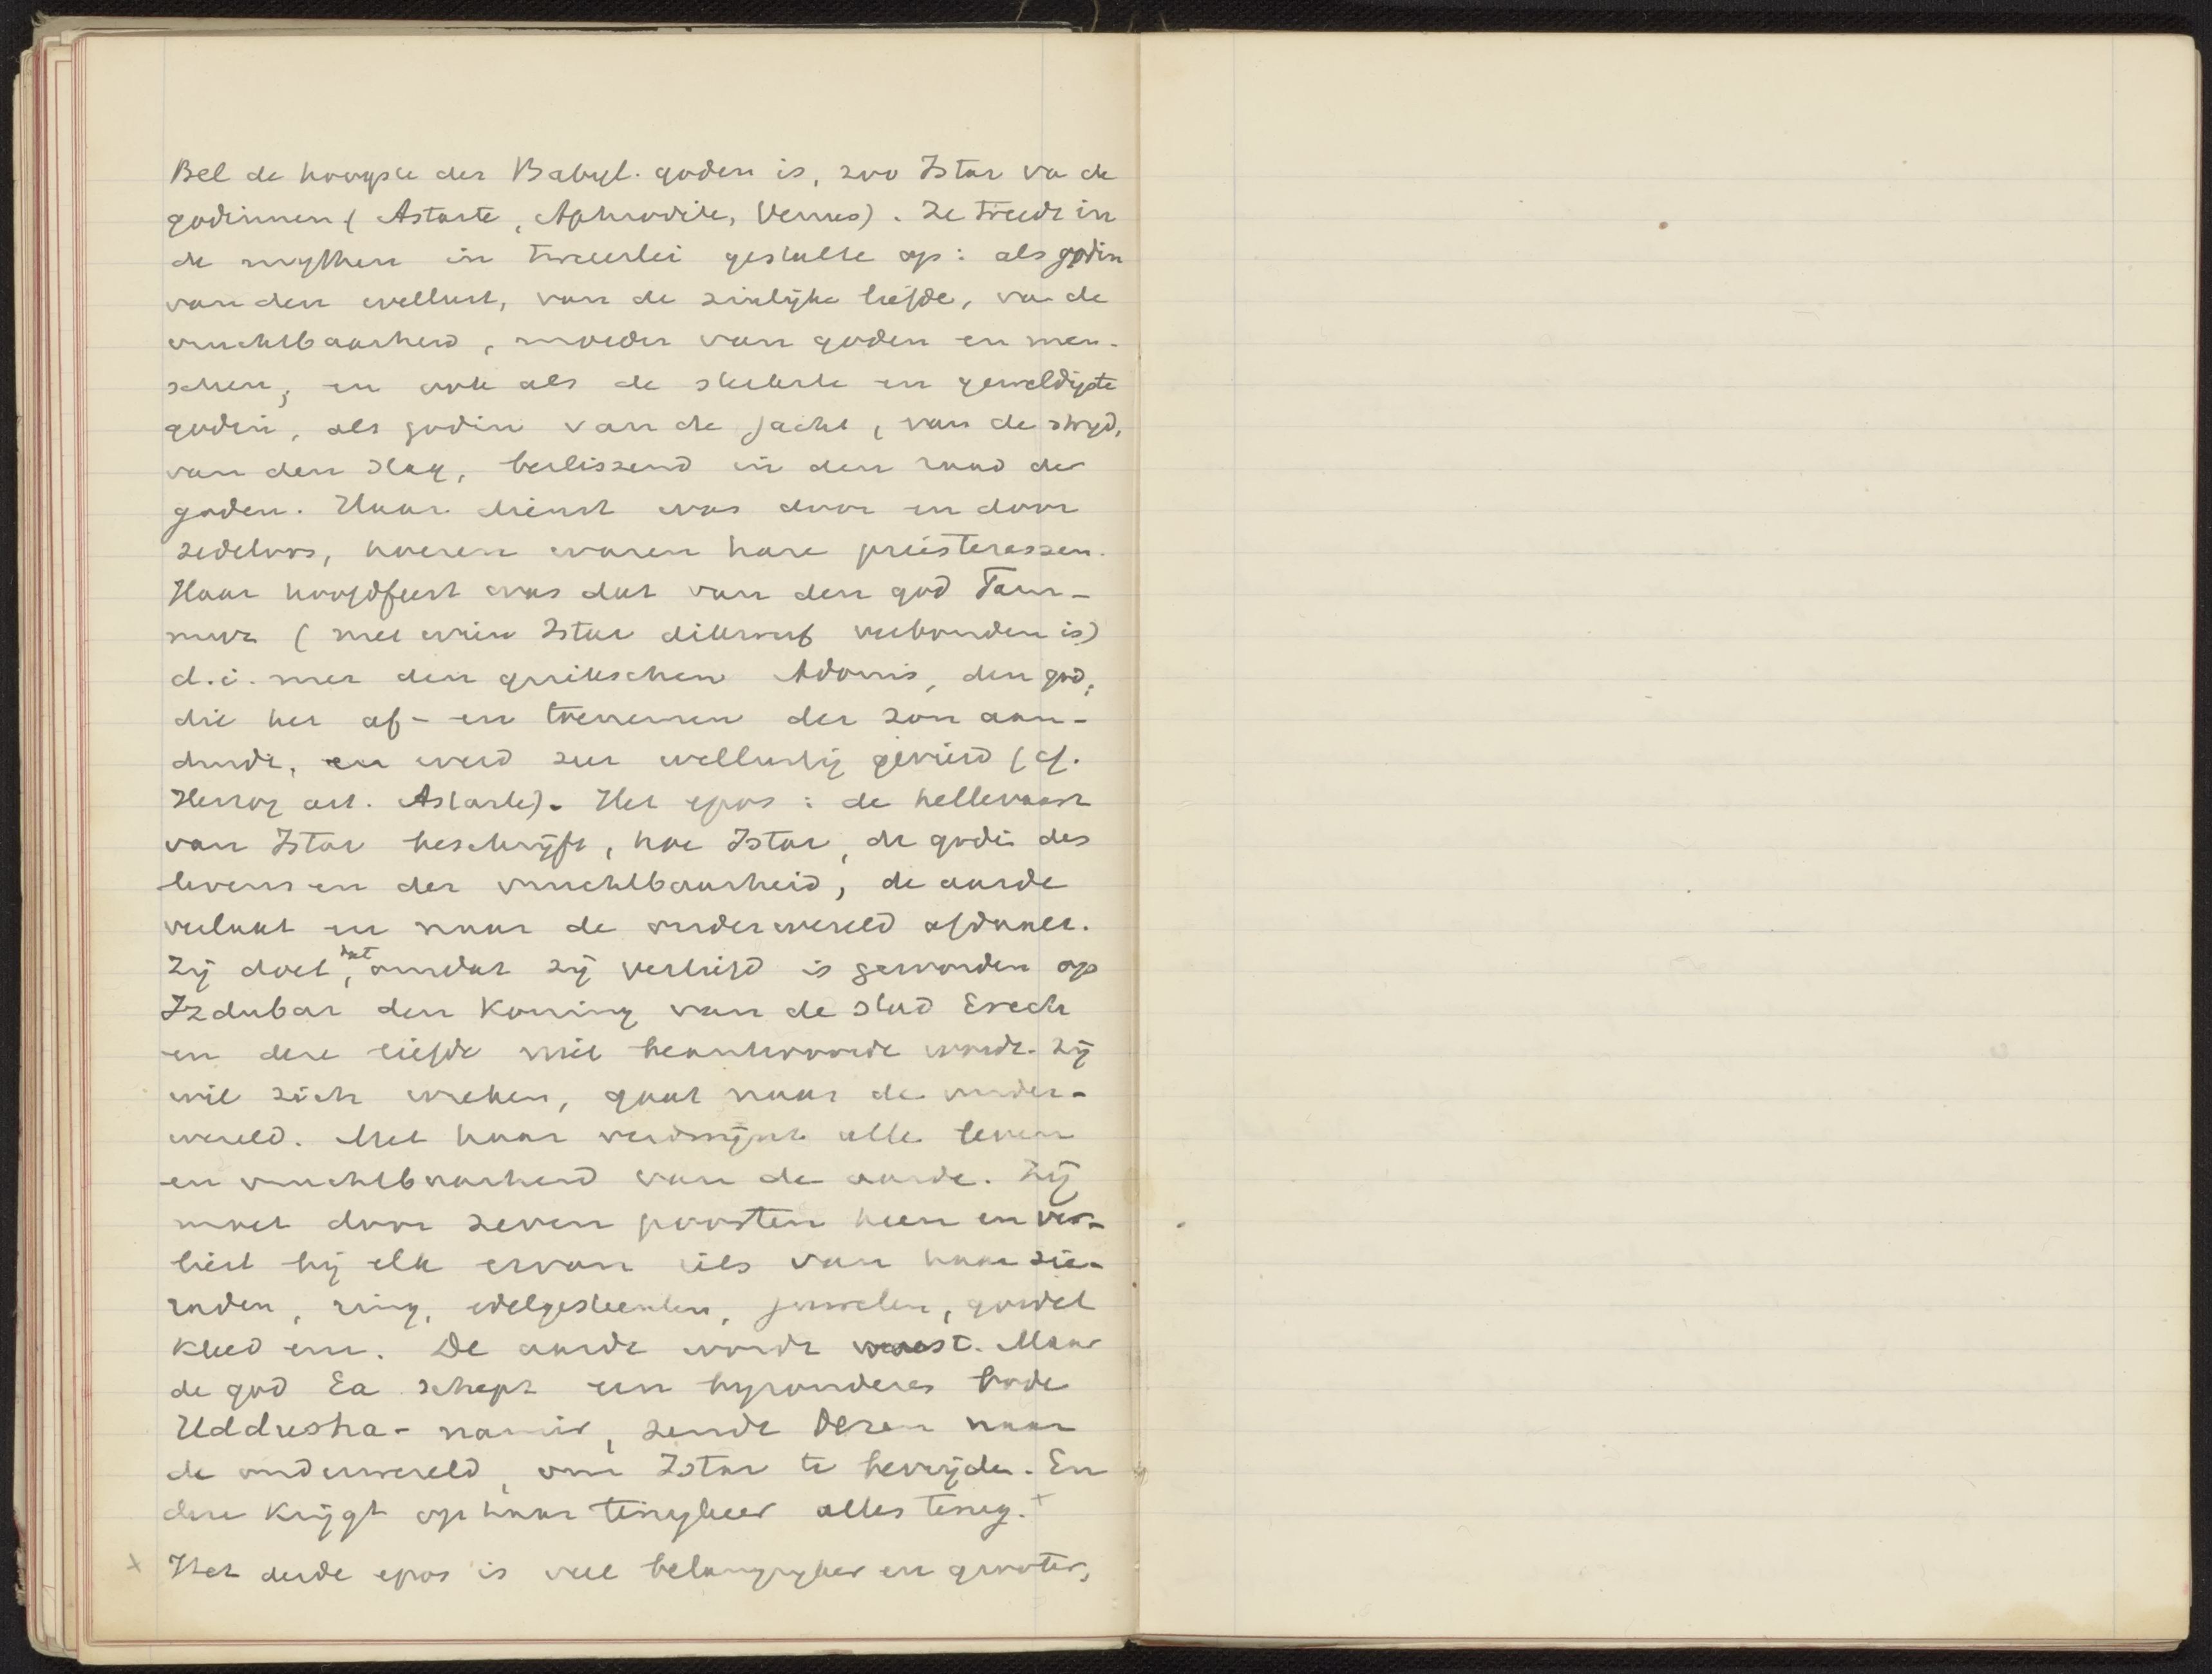 Bel de hoogste der Babyl. goden is, zoo Istar va de
godinnen (Astarte, Aphrodite, Venus). Ze treedt in
de mythen in tweeerlei gestalte op: als godin
van den wellust, van de zinlijke liefde, va de
vruchtbaarheid, moeder van goden en men-
schen; en ook als de sterkste en geweldigste
godin, als godin van de jacht, van de strijd,
van den slag, beslissend in den raad der
goden. Haar dienst was door en door
zedeloos, hoeren waren hare priesteressen.
Haar hoofdfeest was dat van den god Tam-
muz (met wien Istar dikwerf verbonden is)
d.i. met den griekschen Adonis, den god,
die het af- en toenemen der zon aan-
duidt, en werd zeer wellustig gevierd (cf.
Herzog art. Astarte). Het epos: de hellevaart
van Istar beschrijft, hoe Istar, de godin des
levens en der vruchtbaarheid, de aarde
verlaat en naar de onderwereld afdaalt.
Zij doet dat, omdat zij verliefd is geworden op
Izdubar den Koning van de stad Erech
en deze liefde niet beantwoord wordt. Zij
wil zich wreken, gaat naar de onder-
wereld. Met haar verdwijnt alle leven
en vruchtbaarheid van de aarde. Zij
moet door zeven poorten heen en ver-
liest bij elk ervan iets van haar sie-
raden, ring, edelgesteenten, juweelen, gordel
kleed enz. De aarde wordt woest. Maar
de god Ea schept een byzonderes bode
Uddusha-namir, zendt dezen naar
de onderwereld, om Istar te bevrijden. En
deze krijgt op haar terugkeer alles terug. +
+ Het derde epos is veel belangrijker en grooter,